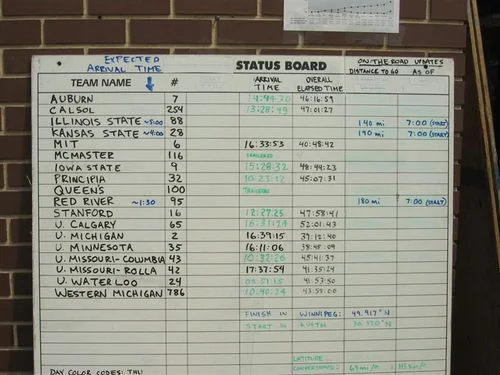 EXPECTED
ARRIVAL TIME
STATUS BOARD
ON-THE-ROAD UPDATES
TEAM NAME # ARRIVAL TIME OVERALL ELAPSED TIME DISTANCE TO GO AS OF
AUBURN 7 46:16:59
CALSOL 254 13:28:49 47:01:27
ILLINOIS STATE ~5:00 88 140 mi 7:00 (START)
KANSAS STATE ~4:00 28 190 mi 7:00 (START)
MIT 6 16:33:53 40:48:42
MCMASTER 116 TRAILERED
IOWA STATE 9 15:28:32 48:44:23
PRINCIPIA 32 10:23:12 45:07:31
QUEEN'S 100 TRAILERED
RED RIVER ~1:30 95 180 mi 7:00 (START)
STANFORD 16 12:27:25 47:58:41
U. CALGARY 65 16:31:24 52:01:43
U. MICHIGAN 2 16:39:15 37:12:40
U. MINNESOTA 35 16:11:06 38:45:09
U. MISSOURI-COLUMBIA 43 10:32:26 45:41:37
U. MISSOURI-ROLLA 42 17:37:54 41:35:24
U. WATERLOO 24 08:51:15 41:53:50
WESTERN MICHIGAN 786 10:40:24 43:58:06
FINISH IN WINNIPEG: 49.917°N
START IN AUSTIN
LATITUDE
CONVERSIONS:
DAY COLOR CODES: THU